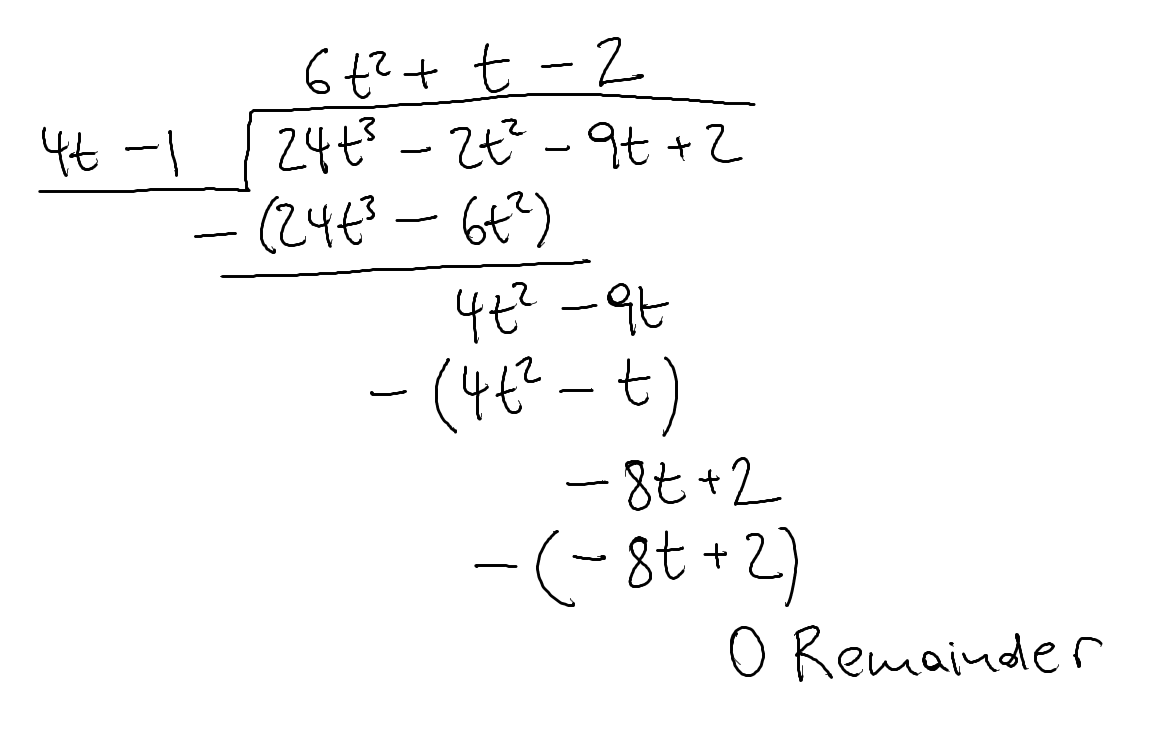 6t² + t - 2
4t - 1 24t³ - 2t² - 9t + 2
- (24t³ - 6t²)
4t² - 9t
- (4t² - t)
- 8t + 2
- (- 8t + 2)
0 Remainder